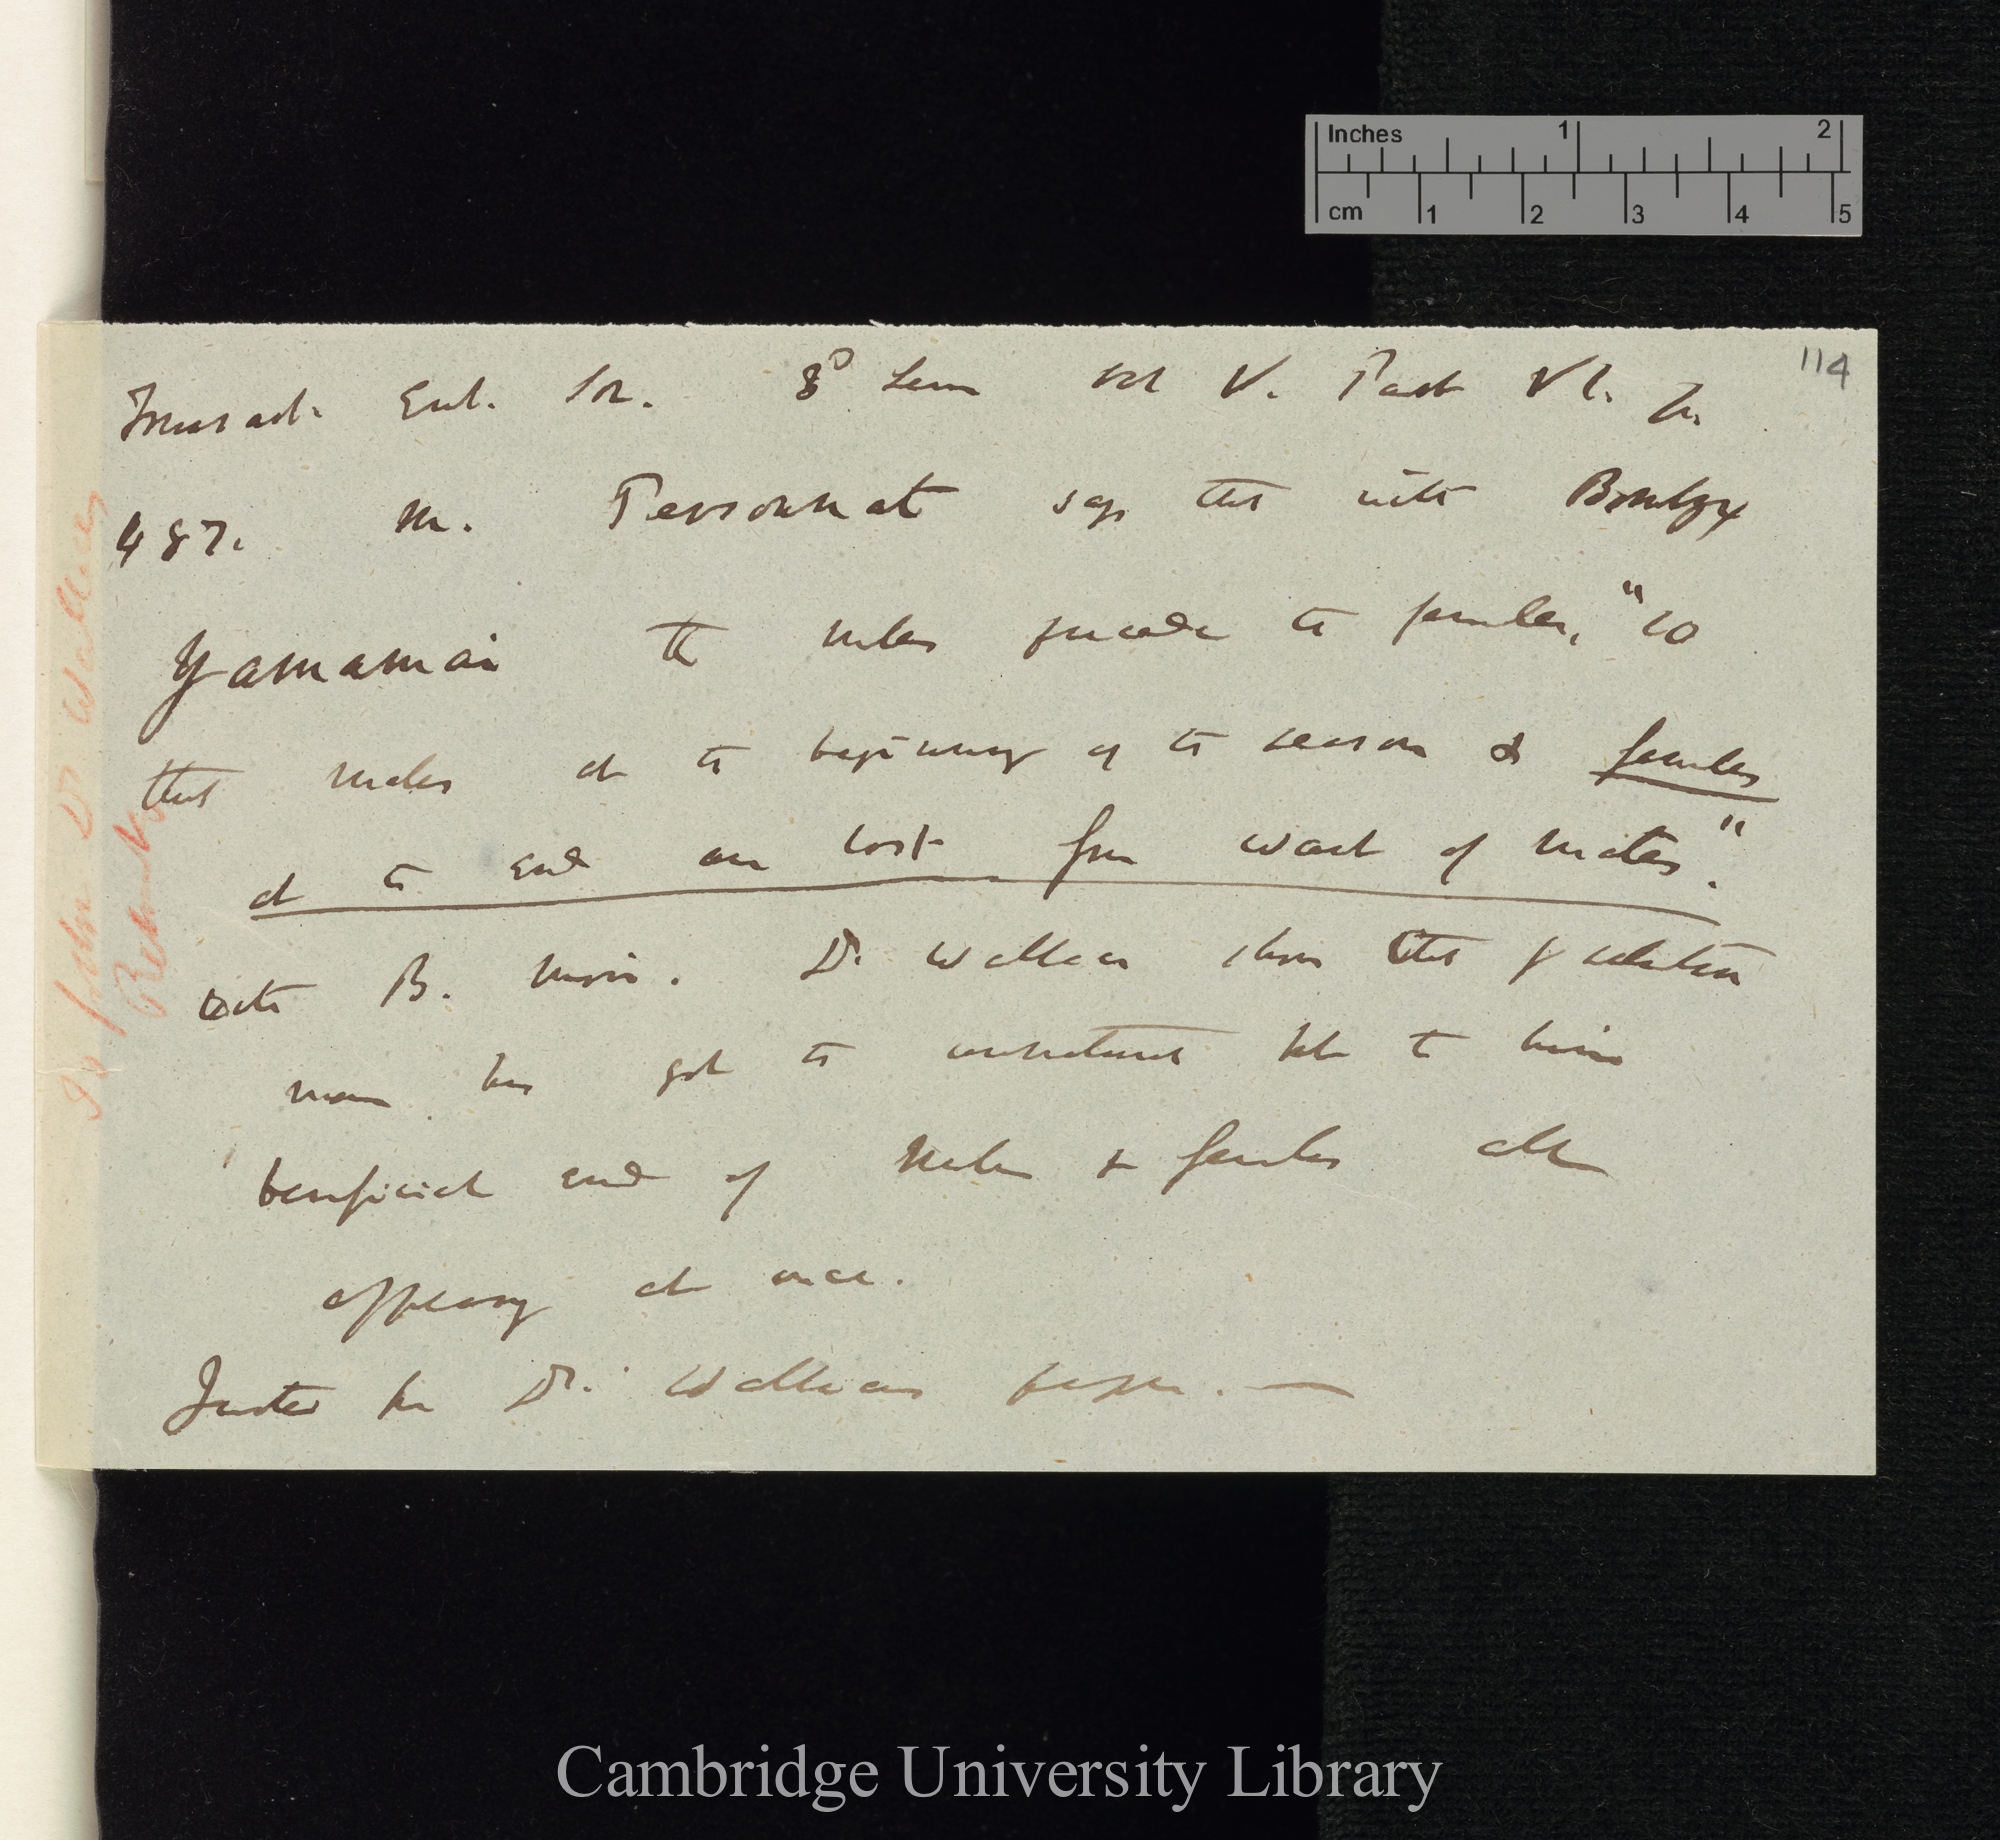 Inches 1 2
cm 1 2 3 4 5
114
Transact. Ent. Soc. 3d Series vol V. Part VI. p.
487. M. Personnat says that with Bombyx
Yamamai the males precede the females, "so
that males at the beginning of the season & females
at the end are lost from want of mates."
with B. mori. Dr Wallace shows that
man has got the to
beneficial end of males & females all
appearing at once.
Quoted in Dr. Wallace's paper. —
Dr Wallace
Cambridge University Library